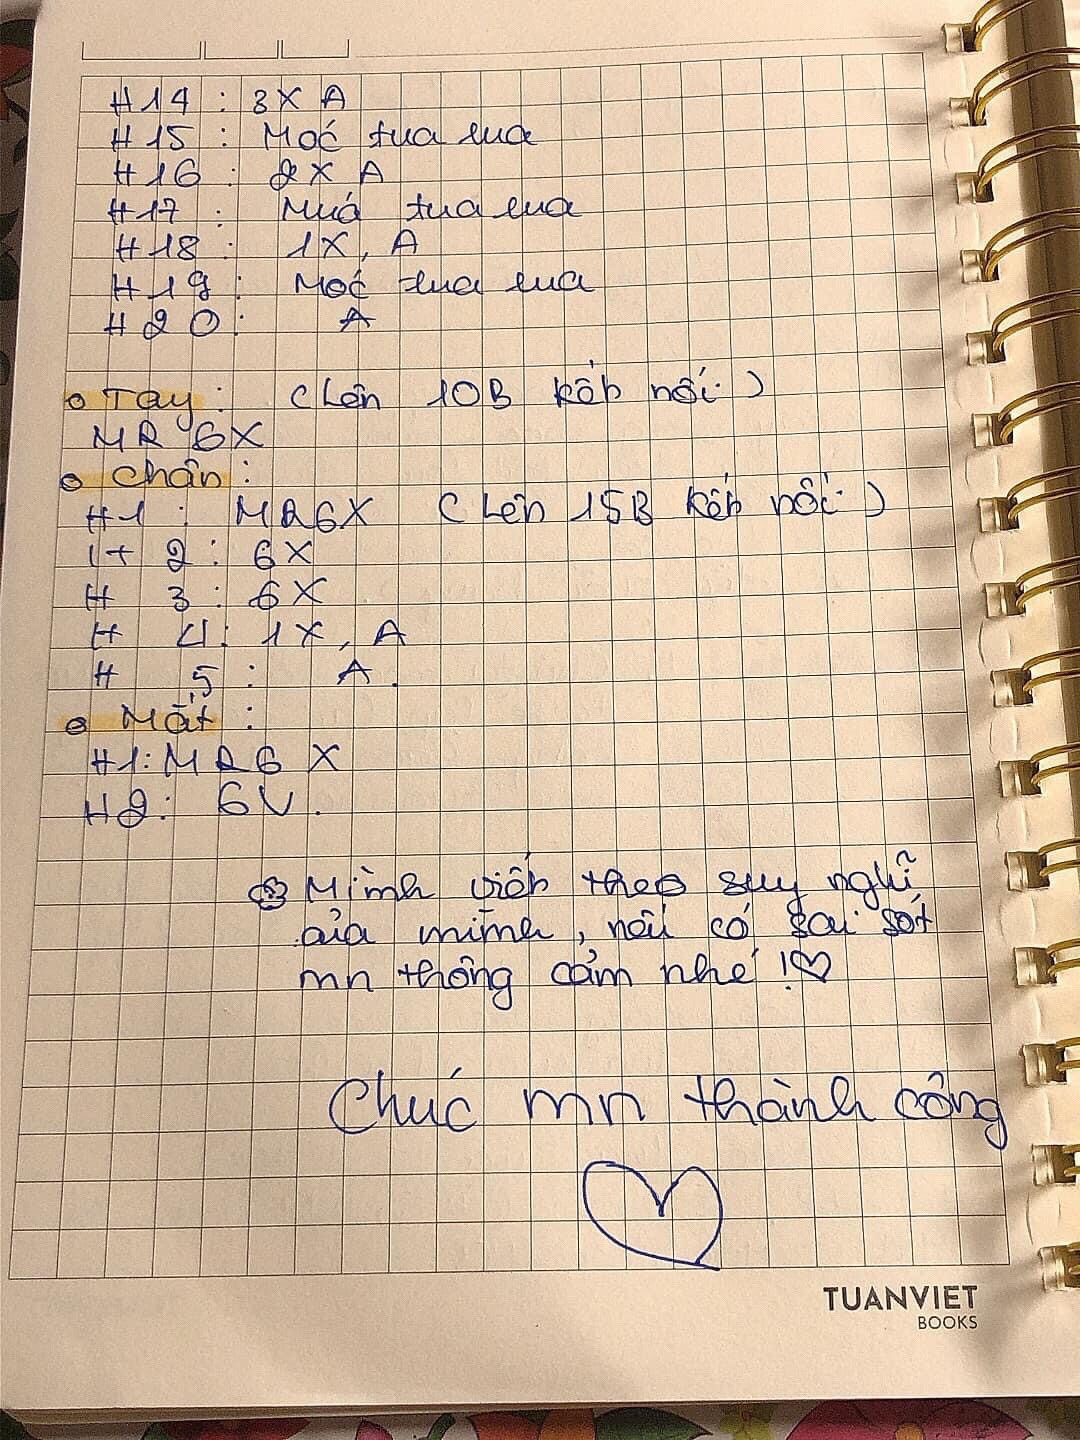 H14 : 3X A
H15 : Moć tua lua
H16 : 2X A
H17 : Muá tua lua
H18 : 1X, A
H19 : Moć tua lua
H20 : A
Tay : (Lên 10B kếp nối)
MR 6X
Chân :
H1 : MR6X (Lên 15B kếp nối)
H 2 : 6X
H 3 : 6X
H 4 : 1X, A
H 5 : A.
Mắt :
H1: MR6 X
H2: 6V.
Mình viết theo suy nghĩ
của mình, nếu có sai sót
mn thông cảm nhé !♡
Chúc mn thành công
TUANVIET
BOOKS